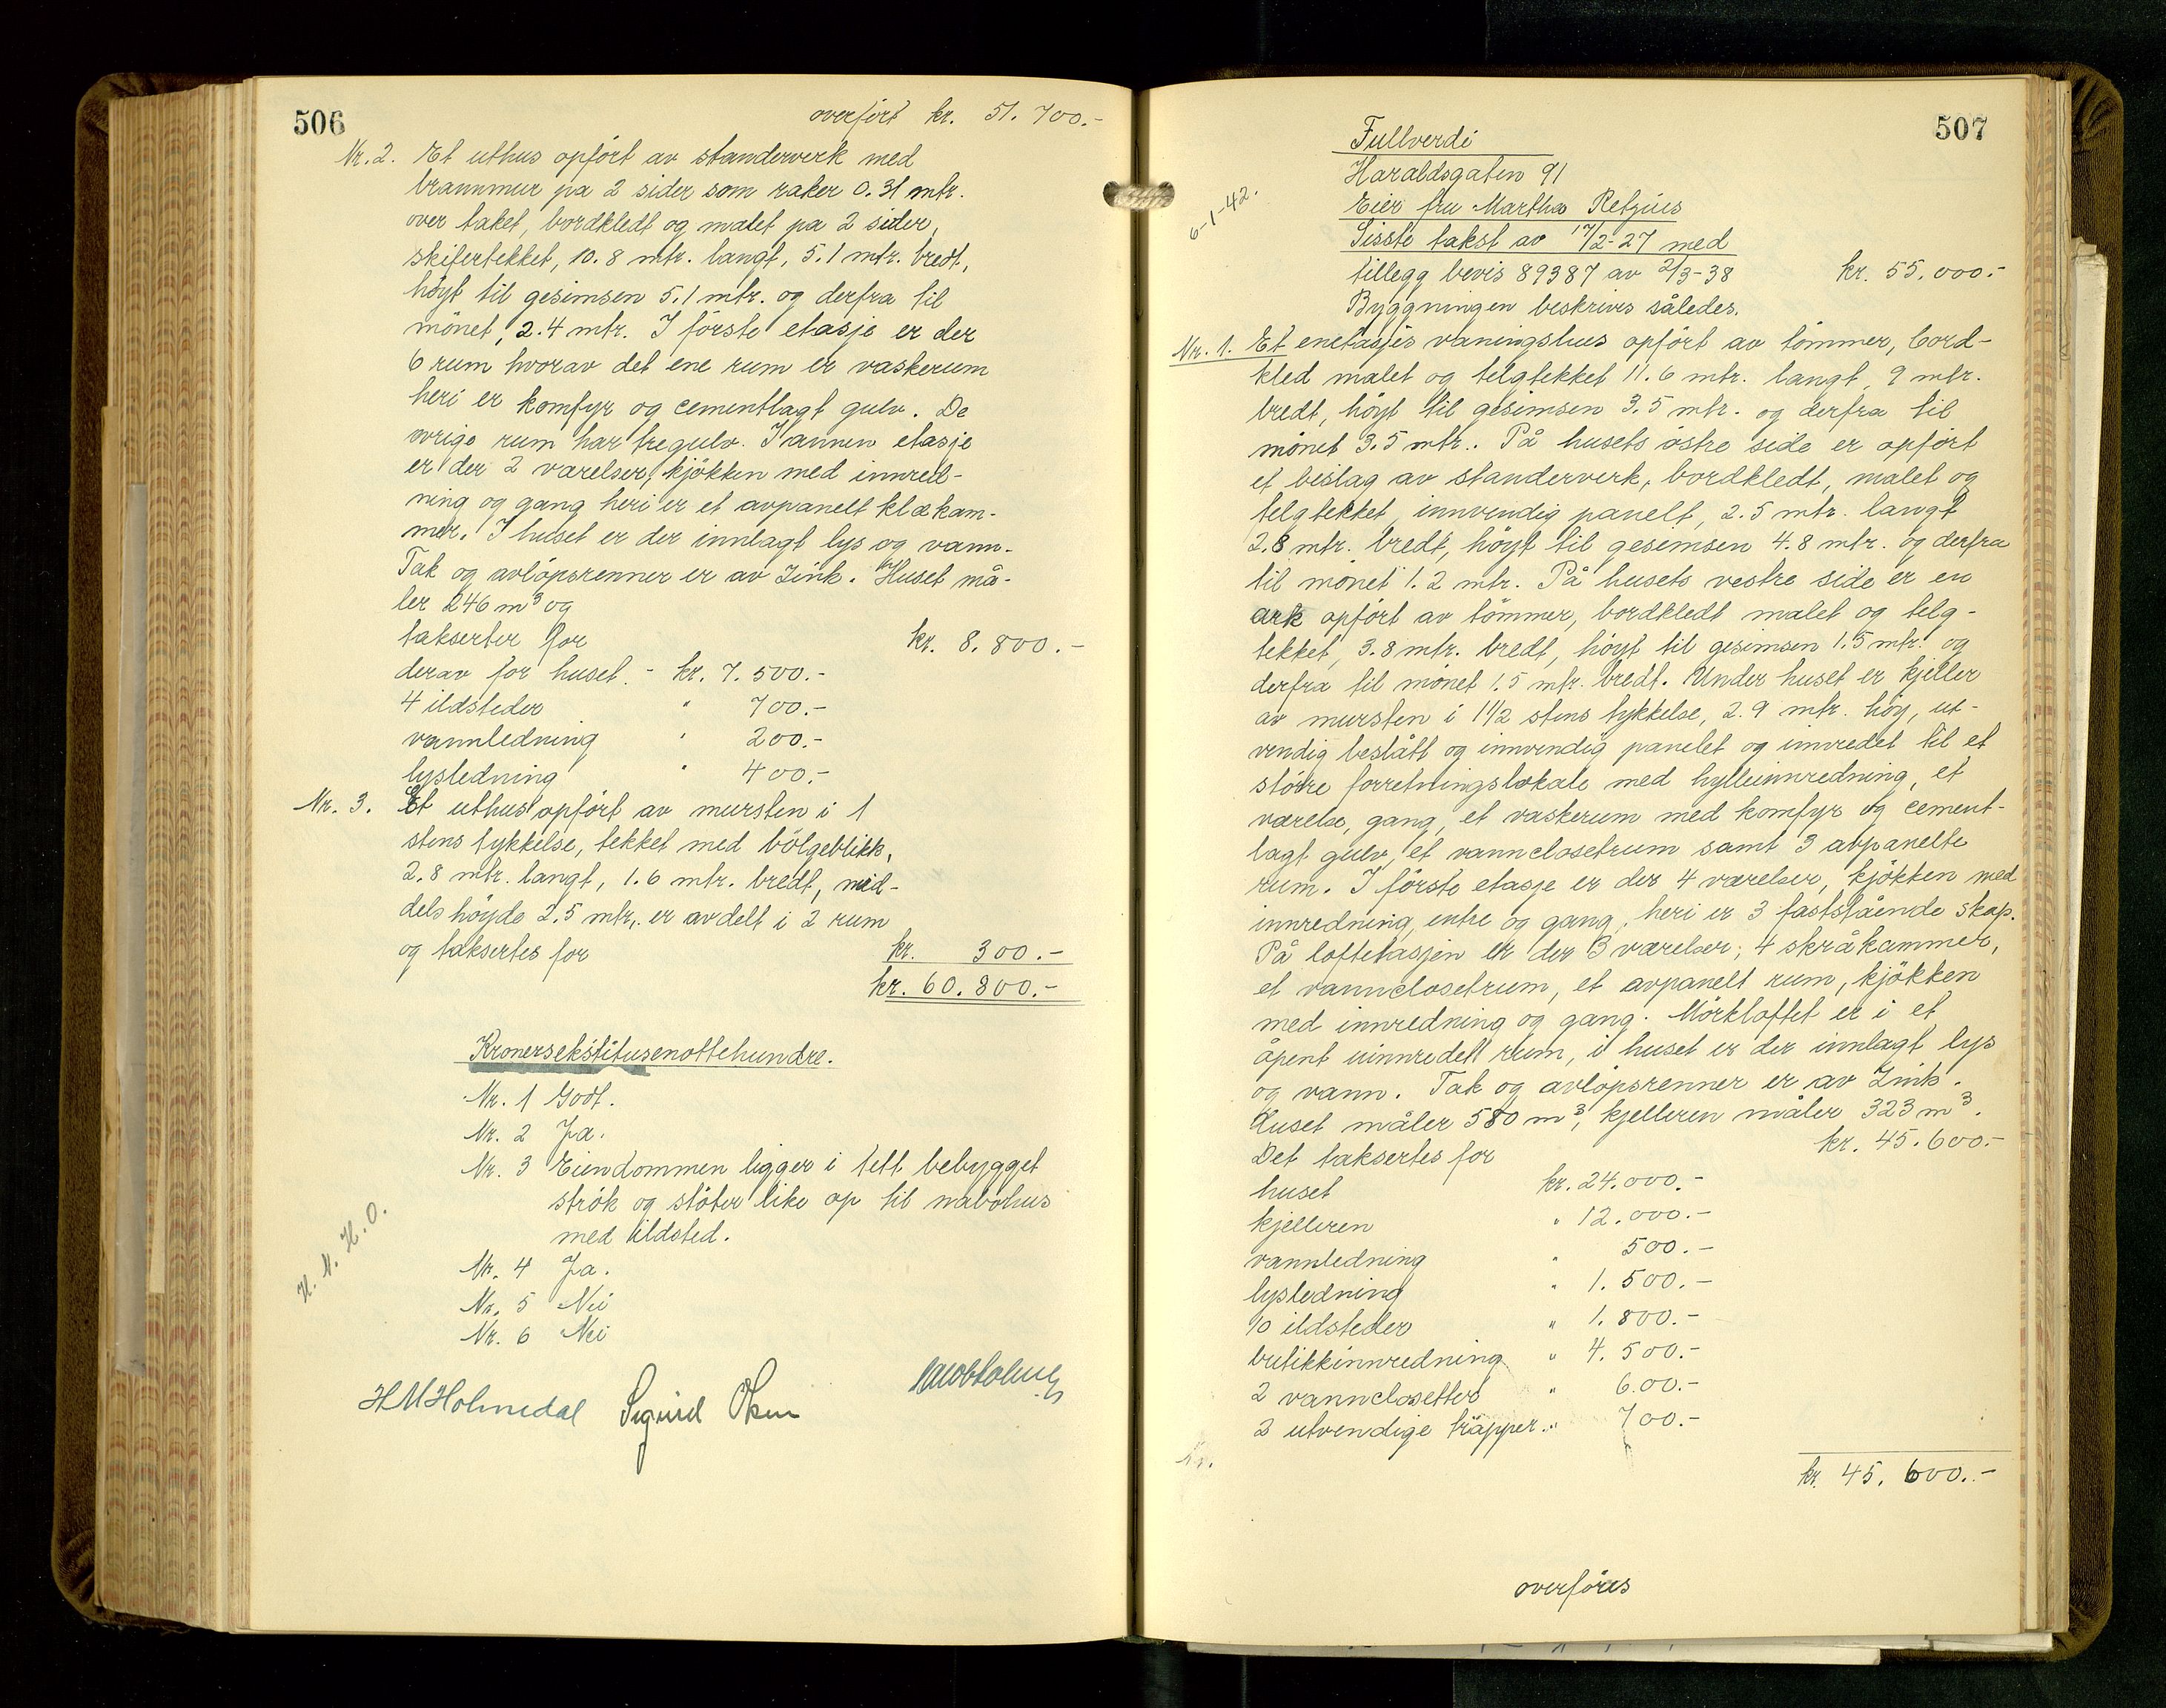 506
overført kr. 51.700.-
Nr. 2. Et uthus opført av standerverk med
brannmur pa 2 sider som raker 0.31 mtr.
over taket, bordkledt og malet pa 2 sider,
skifertekket, 10.8 mtr. langt, 5.1 mtr. bredt,
høyt til gesimsen 5.1 mtr. og derfra til
mønet, 2.4 mtr. I første etasje er der
6 rum hvorav det ene rum er vaskerum
heri er komfyr og cementlagt gulv. De
øvrige rum har tregulv. I annen etasje
er der 2 værelser, kjøkken med innred-
ning og gang heri er et avpanelt klækam-
mer. I huset er der innlagt lys og vann.
Tak og avløpsrenner er av Zink. Huset må-
ler 246 m³ og
takserter for kr. 8.800.-
derav for huset. - kr. 7.500.-
4 ildsteder " 700.-
vannledning " 200.-
lysledning " 400.-
Nr. 3. Et uthus opført av mursten i 1
stens tykkelse, tekket med bølgeblikk,
2.8 mtr. langt, 1.6 mtr. bredt, mid-
dels høyde 2.5 mtr, er avdelt i 2 rum
og taksertes for kr. 300.-
kr. 60.800.-
Kronersekstitusenottehundre.
Nr. 1 Godt.
Nr. 2 Ja.
Nr. 3 Eiendommen ligger i tett bebygget
strøk og støter like op til nabohus
med ildsted.
H. N. H. O.
Nr. 4 Ja.
Nr. 5 Nei
Nr. 6 Nei
H M Holmedal Sigurd Olsen
507
6-1-42.
Fullverdi
Haraldsgaten 91
Eier fru Martha Retzius
Sisste takst av 17/2-27 med
tillegg bevis 89387 av 2/3-38 kr. 55.000.-
Byggningen beskrives således.
Nr. 1. Et enetasjes våningshus opført av tømmer, bord-
kled malet og telgtekket 11.6 mtr. langt, 9 mtr.
bredt, høyt til gesimsen 3.5 mtr. og derfra til
mønet 3.5 mtr.. På husets østre side er opført
et bislag av standerverk, bordkledt, malet og
telgtekket, innvendig panelt, 2.5 mtr. langt
2.8 mtr. bredt, høyt til gesimsen 4.8 mtr. og derfra
til mønet 1.2 mtr. På husets vestre side er en
ark opført av tømmer, bordkledt malet og telg-
tekket, 3.8 mtr. bredt, høyt til gesimsen 1.5 mtr. og
derfra til mønet 1.5 mtr. bredt. Under huset er kjeller
av mursten i 1 1/2 stens tykkelse, 2.9 mtr. høy, ut-
vendig beslått og innvendig panelet og innredet til et
større forretningslokale med hylleinnredning, et
værelse, gang, et vaskerum med komfyr og cement-
lagt gulv, et vannclosetrum samt 3 avpanelte
rum. I første etasje er der 4 værelser, kjøkken med
innredning, entre og gang, heri er 3 faststående skap.
På loftetasjen er der 3 værelser, 4 skråkammer,
et vannclosetrum, et avpanelt rum, kjøkken
med innredning og gang. Mørkloftet er i et
åpent uinnredet rum, i huset er der innlagt lys
og vann. Tak og avløpsrenner er av Zink.
Huset måler 580 m³, kjelleren måler 323 m³.
Det taksertes for kr. 45.600.-
huset kr. 24.000.-
kjelleren " 12.000.-
vannledning " 500.-
lysledning " 1.500.-
10 ildsteder " 1.800.-
butikkinnredning " 4.500.-
2 vannclosetter " 600.-
2 utvendige trapper " 700.-
kr. 45.600.-
overføres